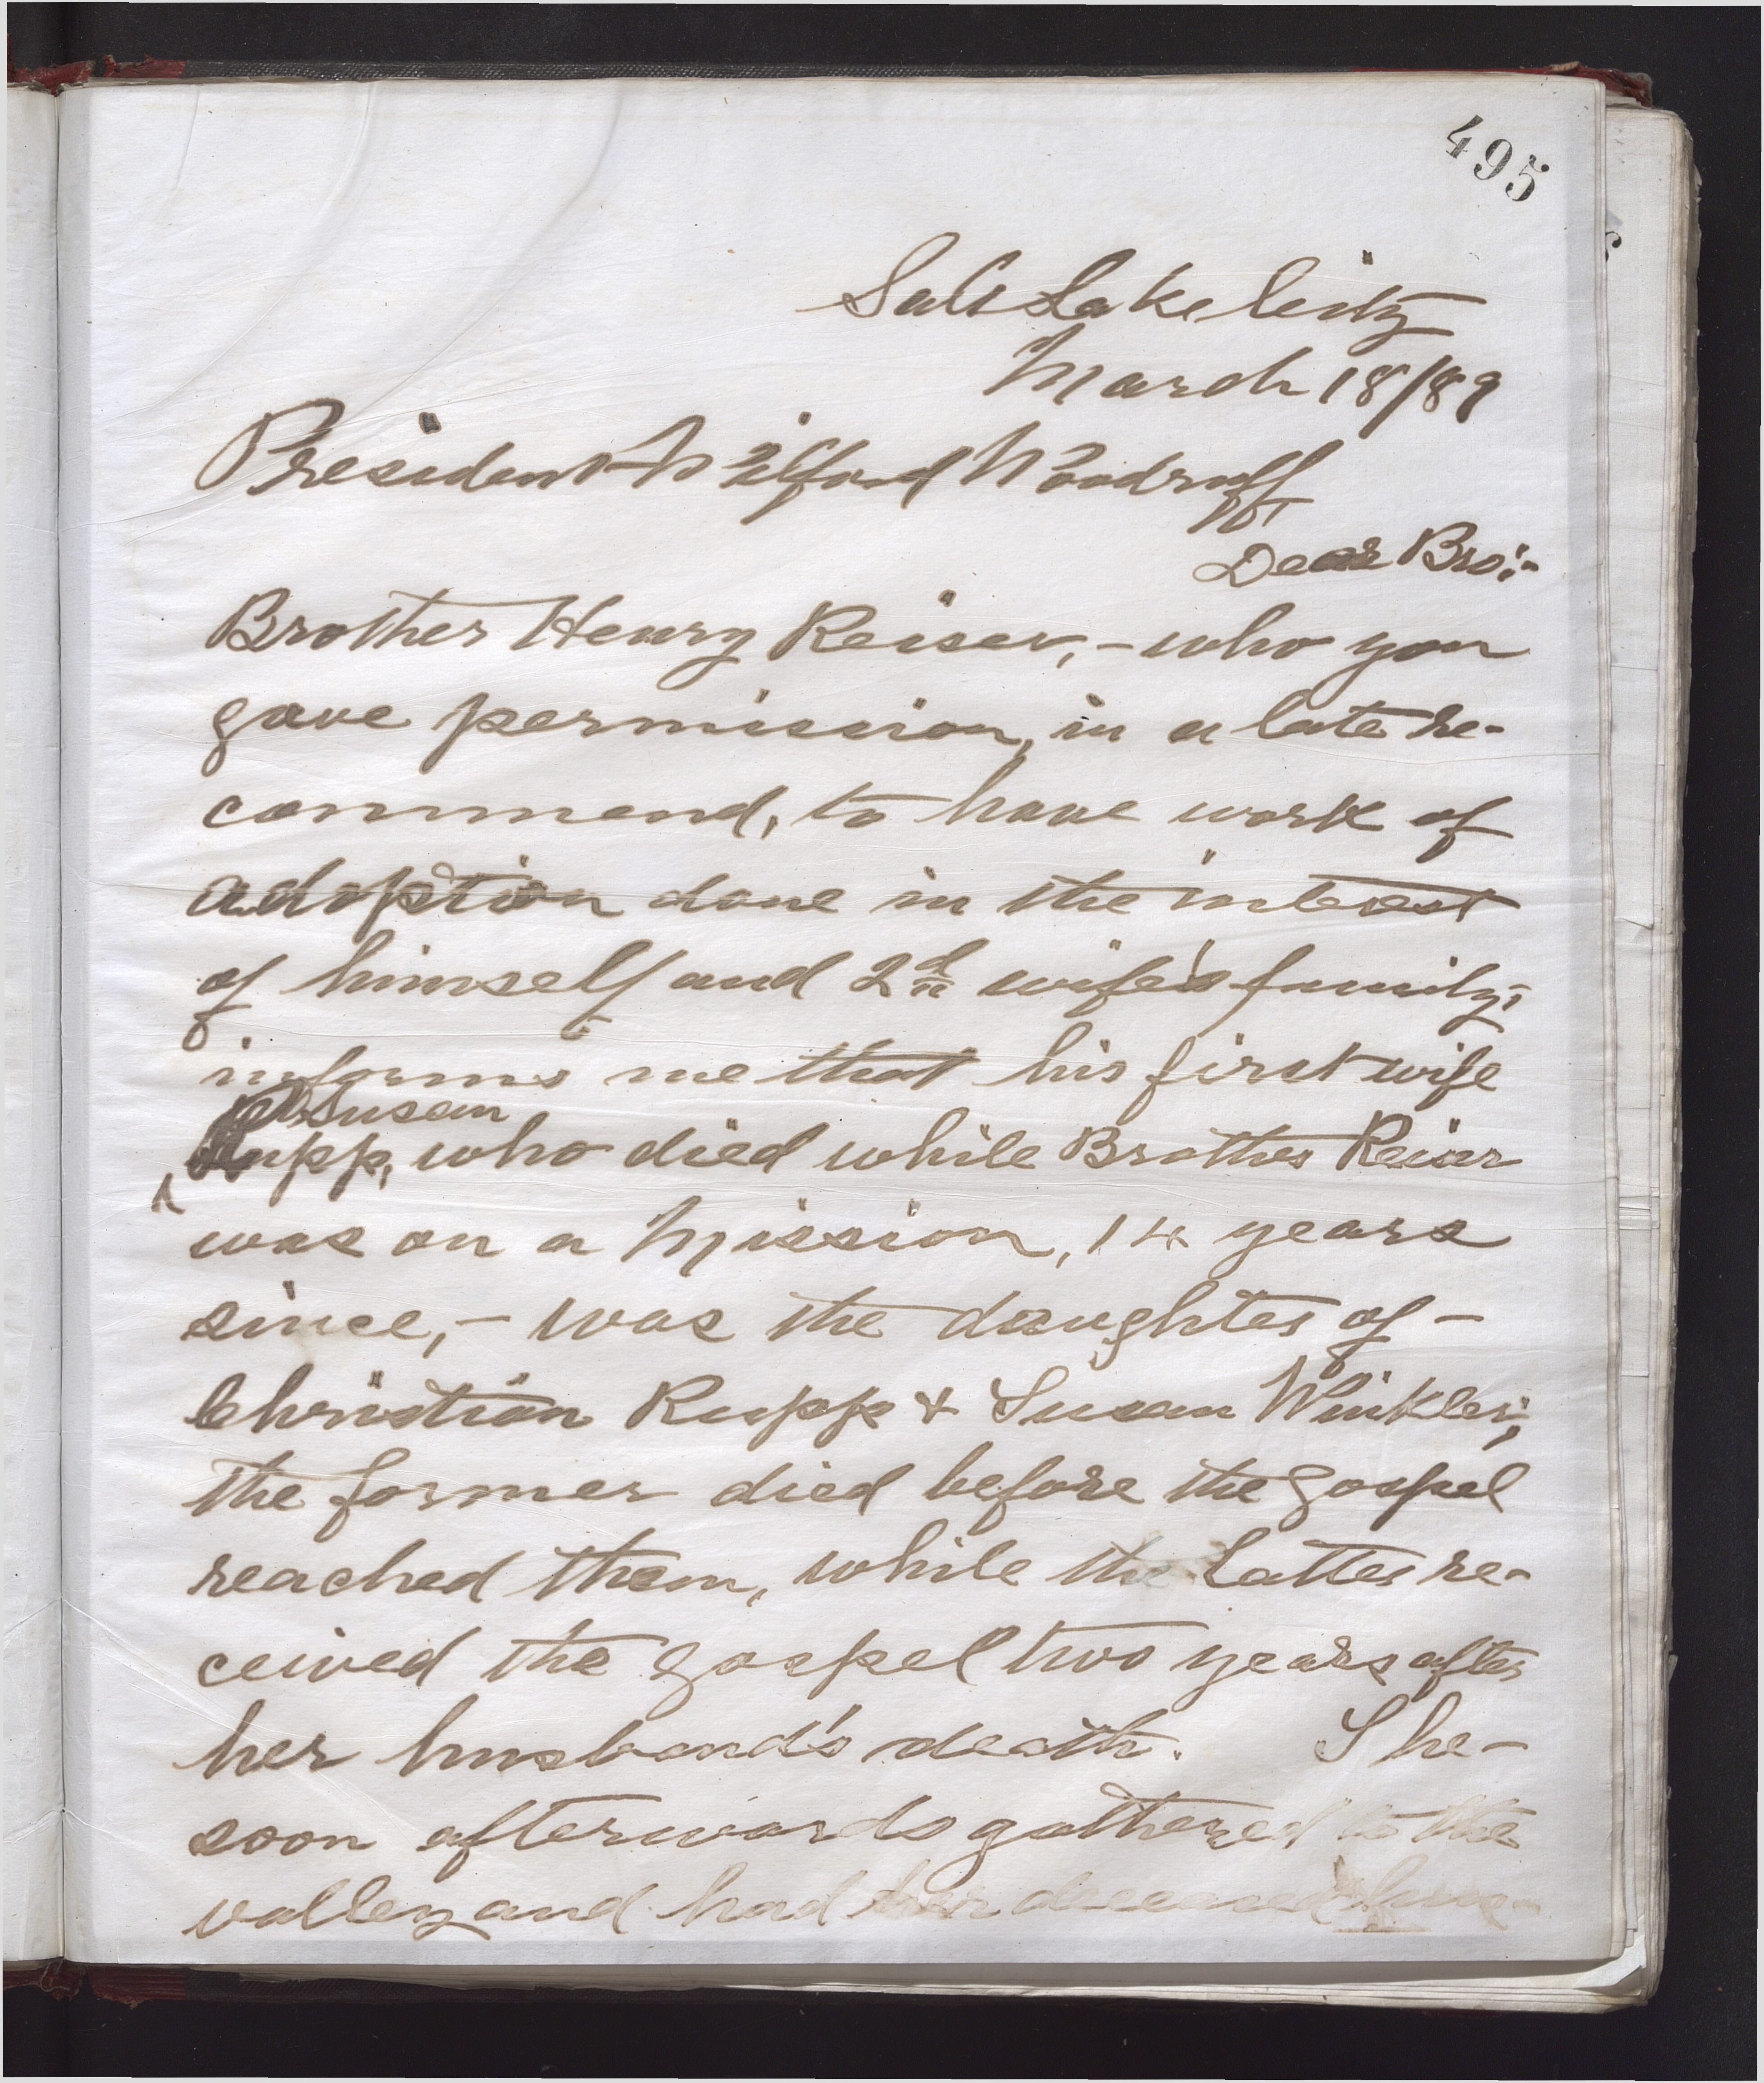 495
Salt Lake City
March 18/89
President Wilford Woodruff
Dear Bro:-
Brother Henry Reiser,- who you
gave permission, in a late re-
commend, to have work of
adoption done in the interest
of himself and 2d wife's family,
informs me that his first wife
Susan
Rupp, who died while Brother Reiser
was on a Mission, 14 years
since,- was the daughter of-
Christian Rupp & Susan Winkler;
the former died before the gospel
reached them, while the latter re-
ceived the gospel two years after
her husband's death. She-
soon afterwards gathered to the
valley and had her deceased hus-